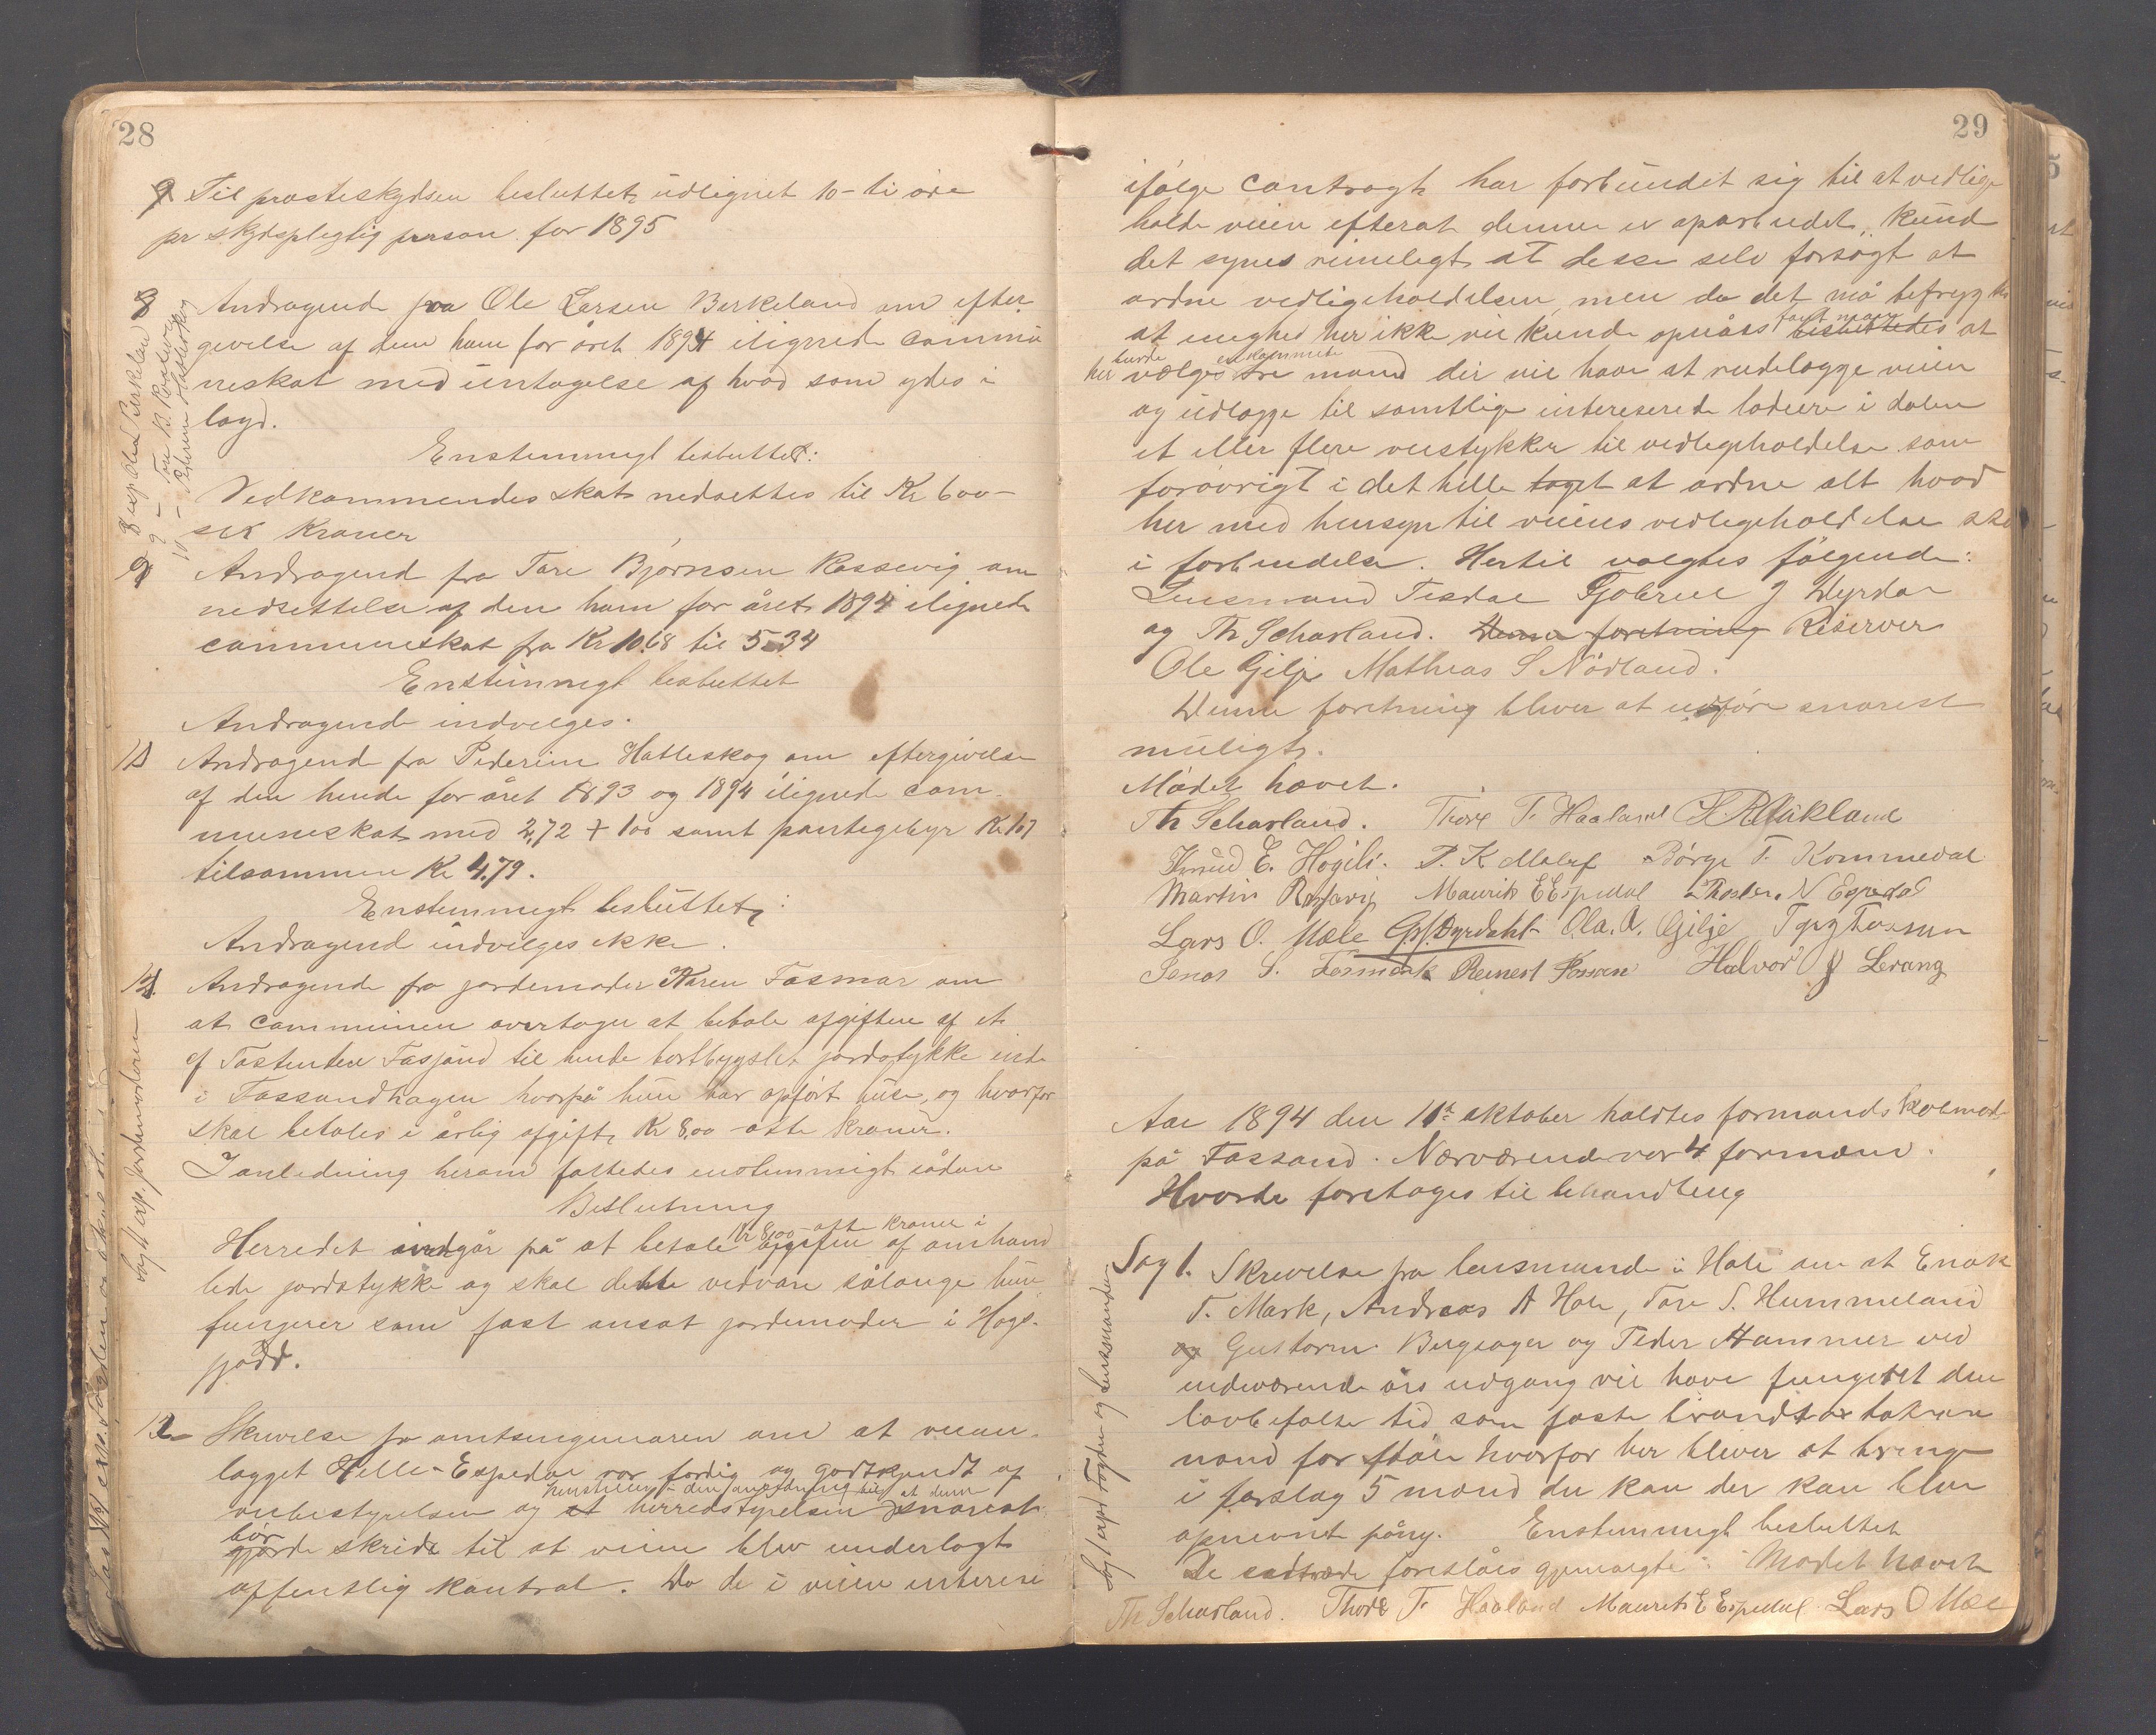 28
7 Til prosteskydsen besluttet udlignet 10 - ti øre
pr skydspligtig person for 1895
8 Andragende fra Ole Larsen Birkeland om efter
givelse af den ham for året 1894 ilignede commu
neskat med untagelse af hvad som ydes i
lægd.
Enstemmigt besluttet:
Vedkommendes skat nedsættes til Kr 600 -
sex Kroner
9 Andragend fra Tore Bjørnsen Rossevig om
nedsettelse af den ham for året 1894 ilignede
communeskat fra Kr 10.68 til 5.34
Enstemmigt besluttet
Andragende indvilges.
10 Andragend fra Pederine Hatleskog om eftergivelse
af den hende for året 1893 og 1894 ilignede com-
muneskat med 2,72 + 100 samt pantegebyr Kr 107
tilsammen Kr 4.79.
Enstemmigt besluttet:
Andragend indvilges ikke.
11. Andragende fra jordemoder Karen Fosmar om
at communen overtager at betale afgiften af et
af Tostenten Fosjand til hende bortbygslet jordstykke inde
i Fossandhagen hvorpå hun har opført huse, og hvorfor
skal betales i årlig afgift Kr 8,00 - otte kroner.
I anledning herom fattedes enstemmigt sådan
Beslutning
Kr 8,00 - otte kroner i
Herredet indgår på at betale afgiften af omhand
lede jordstykke og skal dette vedvare sålænge hun
fungerer som fast ansat jordemoder i Høgs-
fjord.
12 - Skrivelse fra amtsingeniøren om at veian-
lægget Helle - Espedal var færdig og godtkjendt af
henstiller i den anledning til at denne
veibestyrelsen og at herredstyrelsen snarest
bør
gjorde skridt til at veien blev underlagt
offentlig kontrol. Da de i veien interese
8 exp Olad Birkeland
9 - Tore B. Rossevig
10 - Pederine Hatleskog
Sag 11 exp. jordemoderen
29
ifølge contragt har forbundet sig til at vedlige
holde veien efterat denne er oparbeidet, kund
det synes rimeligt at desse selv forsøgt at
ordne vedligeholdelsen, men da det må befrygtes
fandt man
at enighed her ikke vil kunde opnåes besluttedes at
burde en kommite
her vælges tre mand der vil have at rudelægge veien
og udlægge til samtlige intereserede lodeiere i dalen
et eller flere veistykker til vedligeholdelse som
forøvrigt i det hele taget at ordne alt hvad
her med hensyn til veiens vedligeholdelse står
i forbindelse. Hertil valgtes følgende:
Lensmand Tisdal Gabriel J Dyrdal
og Th Scharland. Denne foretning Reserver
Ole Gilje Mathias S Nådland.
Denne foretning bliver at udføre snarest
muligt.
Mødet hævet.
Th Scharland. Thore T. Haaland S. R. Aukland
Knud E. Høgeli. P. K Molaug Børge T. Kommedal
Martin Rossavig Maurits E Espedal Thosten N Espedal
Lars O. Mæle G J Dyrdahl Ola. A. Gilje
Jonas S. Reinert Fossan Halvor J Levang
Aar 1894 den 11te oktober holdtes formandskabsmøde
på Fossand. Nærværende var 4 formænd.
Hvorda foretoges til behandling
Sag 1. Skrivelse fra lensmanden i Hole om at Enok
T. Mark, Andreas A Hole, Tore S. Hummeland
og Guttorm Bergsager og Peder Hammer ved
indeværende års udgang vil have fungeret den
lovbefalte tid som faste brandtaxtations
mænd for Hole hvorfor her bliver at bringe
i forslag 5 mænd der kan der kan blive
opnevnt påny. Enstemmigt besluttet
De udtrædende foreslåes gjenvalgte. Mødet hævet
Th Scharland. Thore T. Haaland Maurits E Espedal Lars O Mæle
Sag 1 expd Fogden og Lensmanden